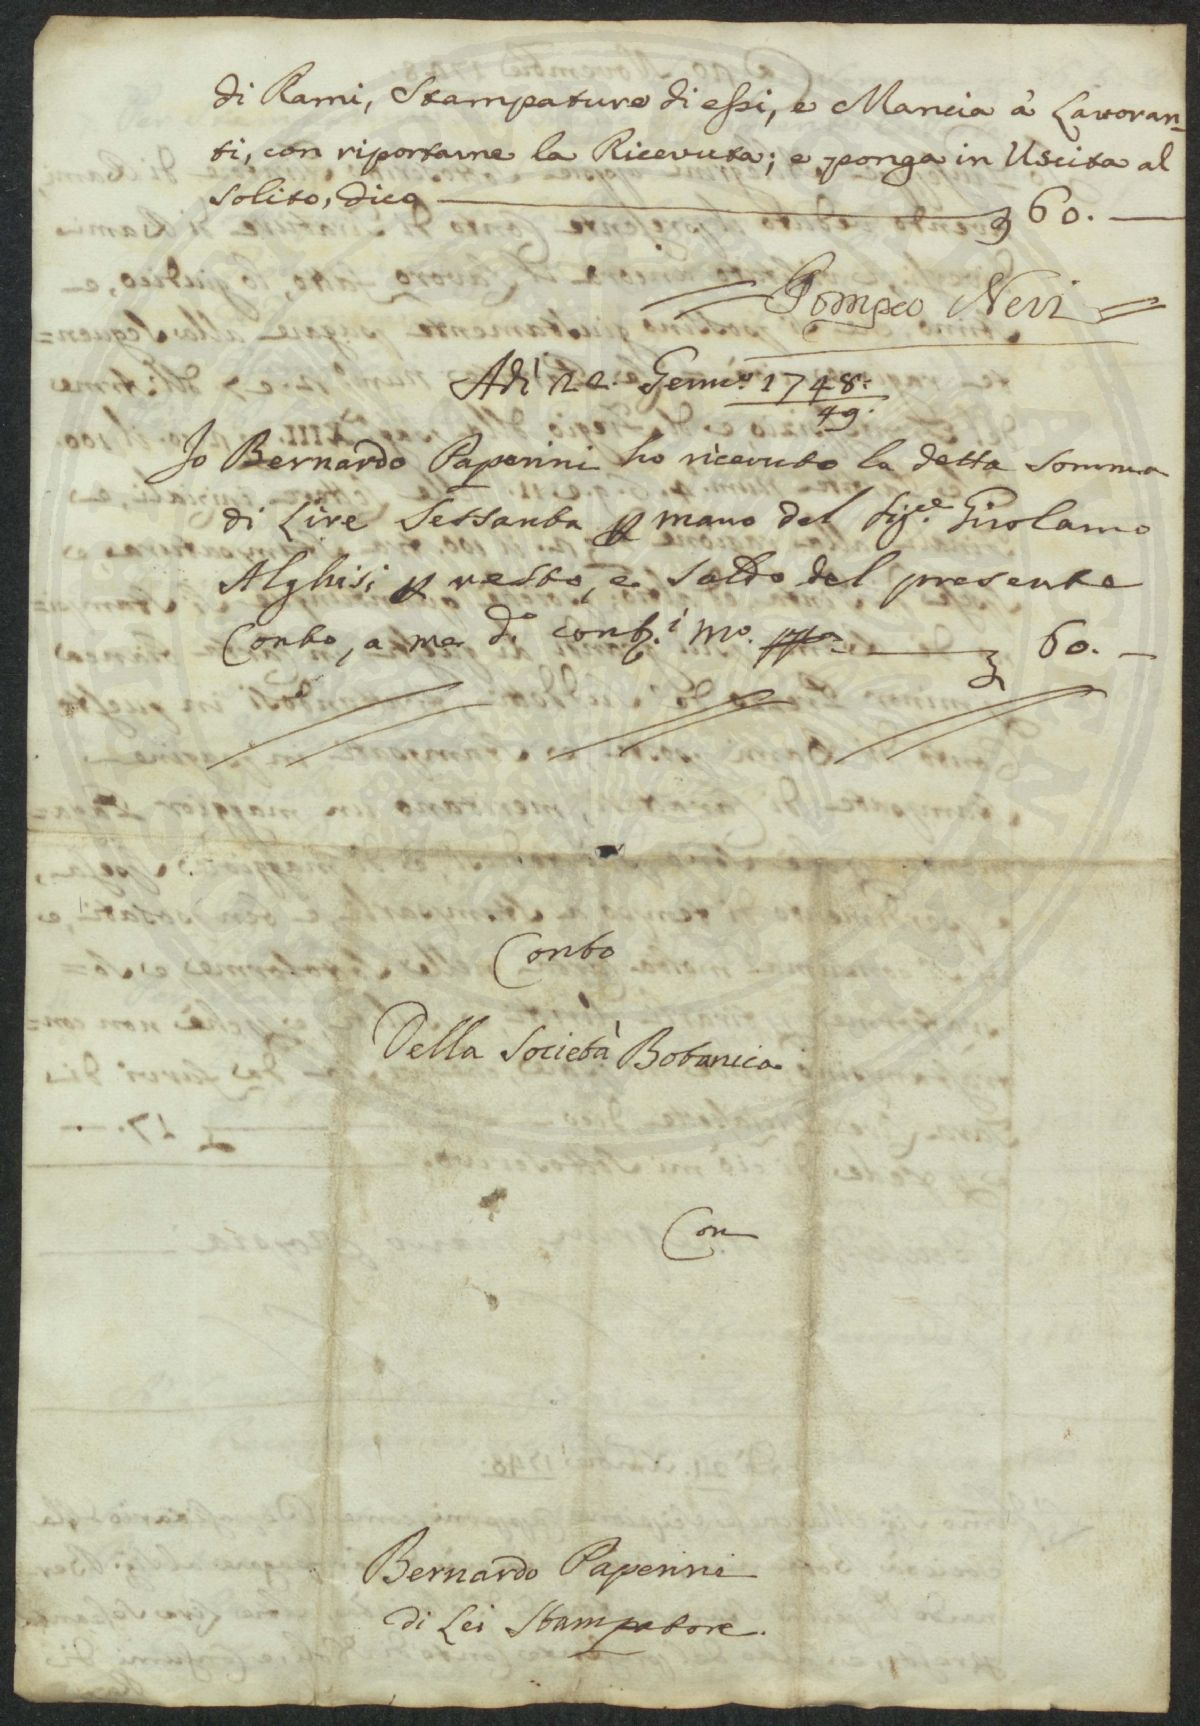 di Rami, Stampature di essi, e Mancia à Lavoran-
ti, con riportarne la Ricevuta; e ponga in Uscita al
Solito, dico 60. —
Pompeo Neri
Adì 22. Genn.o 1748:
49.
Io Bernardo Paperini ho ricevuto la detta somma
di Lire Sessanta p mano del Sig.e Girolamo
Alghisi p resto, e saldo del presente
Conto, a me d.o cont.i m.o 60. —
Conto
Della Società Botanica
Con
Bernardo Paperini
di Lei Stampatore.